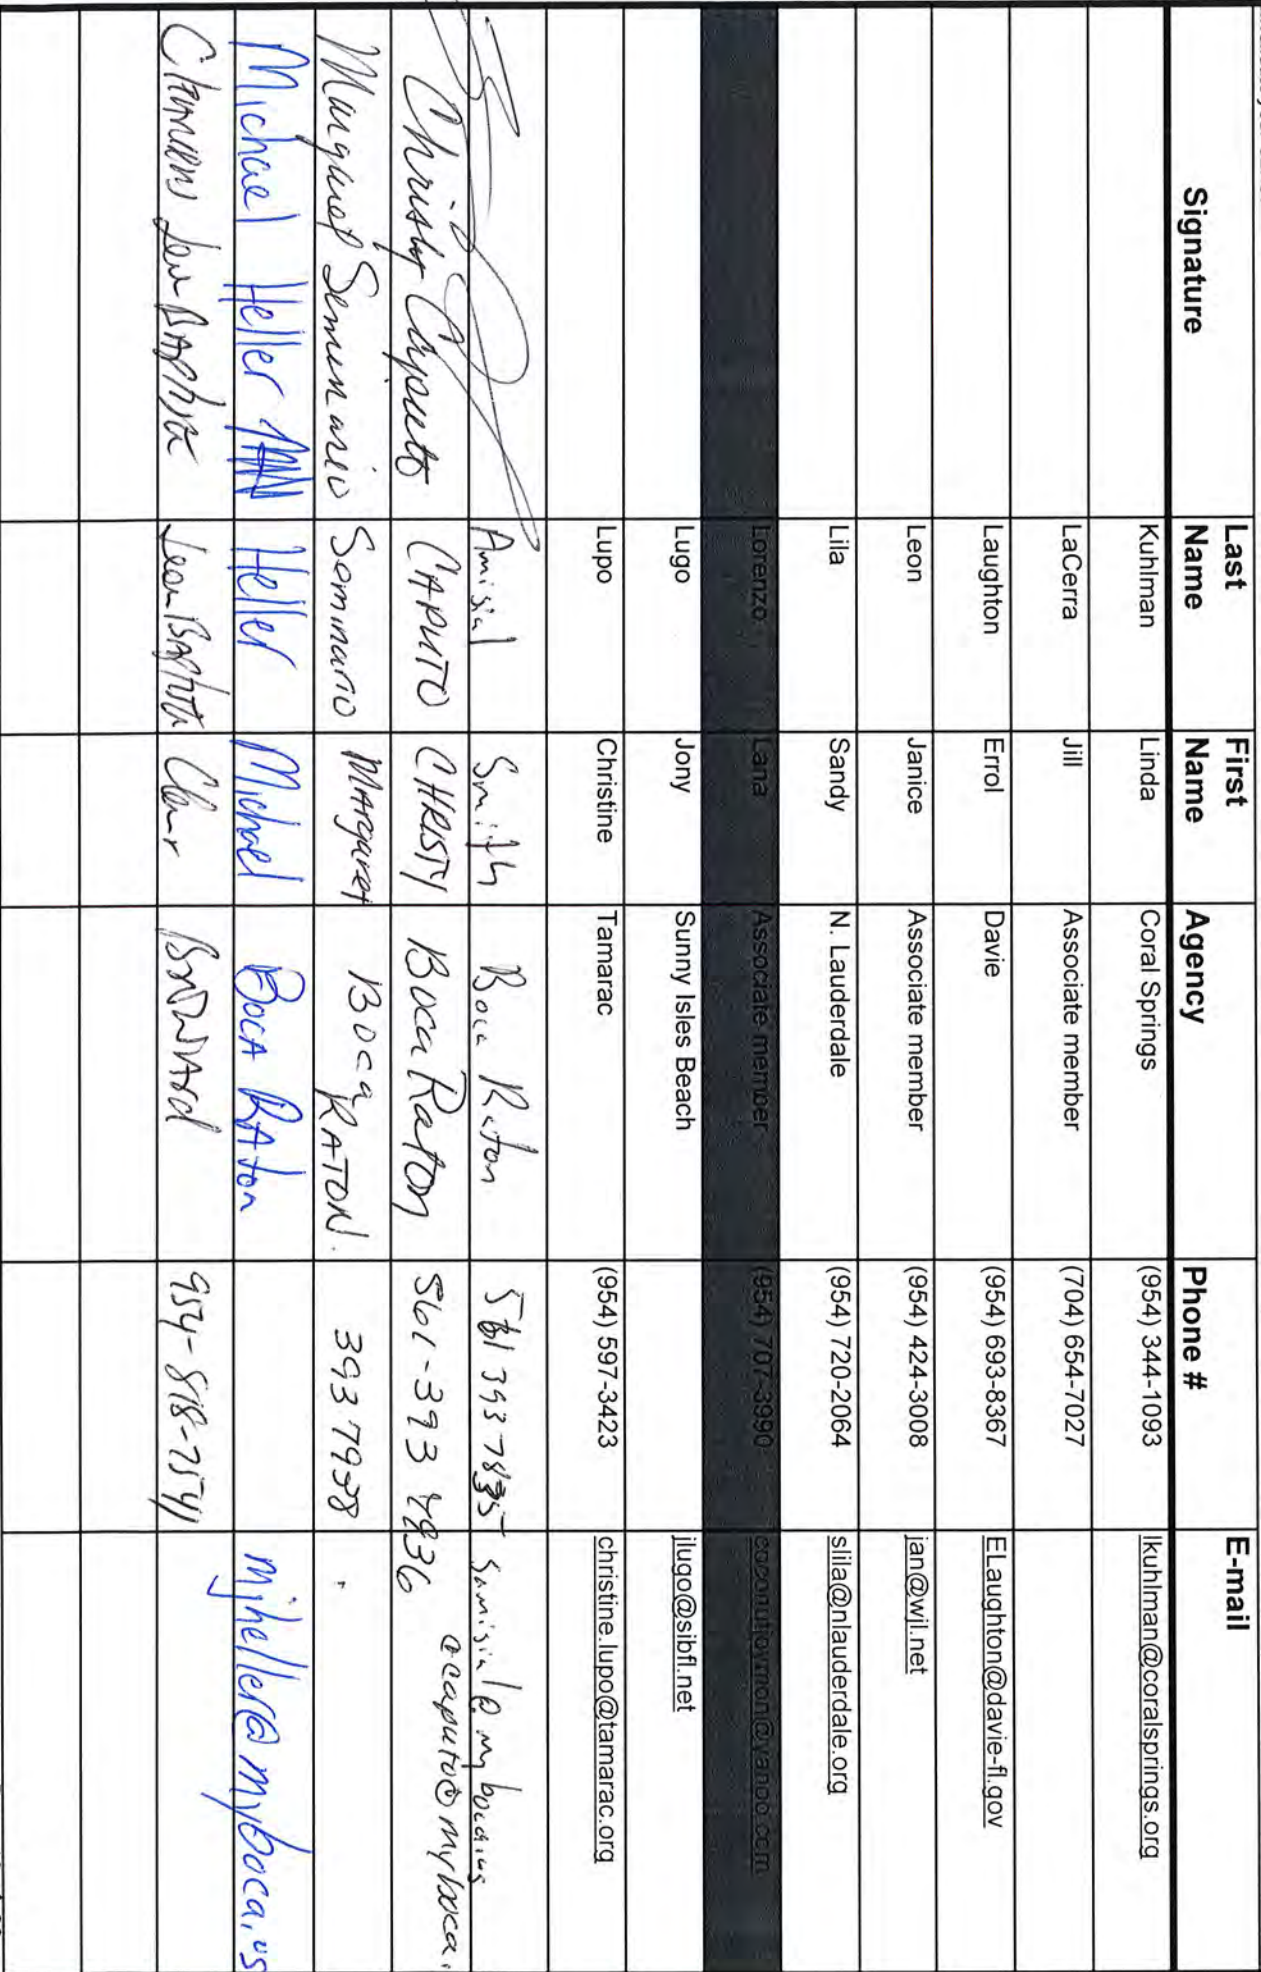 Signature Last Name First Name Agency Phone # E-mail
Kuhlman Linda Coral Springs (954) 344-1093 lkuhlman@coralsprings.org
LaCerra Jill Associate member (704) 654-7027
Laughton Errol Davie (954) 693-8367 ELaughton@davie-fl.gov
Leon Janice Associate member (954) 424-3008 jan@wjl.net
Lila Sandy N. Lauderdale (954) 720-2064 slila@nlauderdale.org
Lorenzo Lana Associate member (954) 707-3990 coconutjoymon@yahoo.com
Lugo Jony Sunny Isles Beach jlugo@sibfl.net
Lupo Christine Tamarac (954) 597-3423 christine.lupo@tamarac.org
Amisial Smith Boca Raton 561 393 7835 Samisial@myboca.us
Christy Caputo CAPUTO CHRISTY Boca Raton 561-393 7836 ccaputo@myboca.
Margaret Seminario Seminario Margaret Boca RATON. 393 7928
Michael Heller Heller Michael BOCA RAton mjheller@myboca.us
Jean Baptiste Jean Baptiste BROWARd 954-818-7541